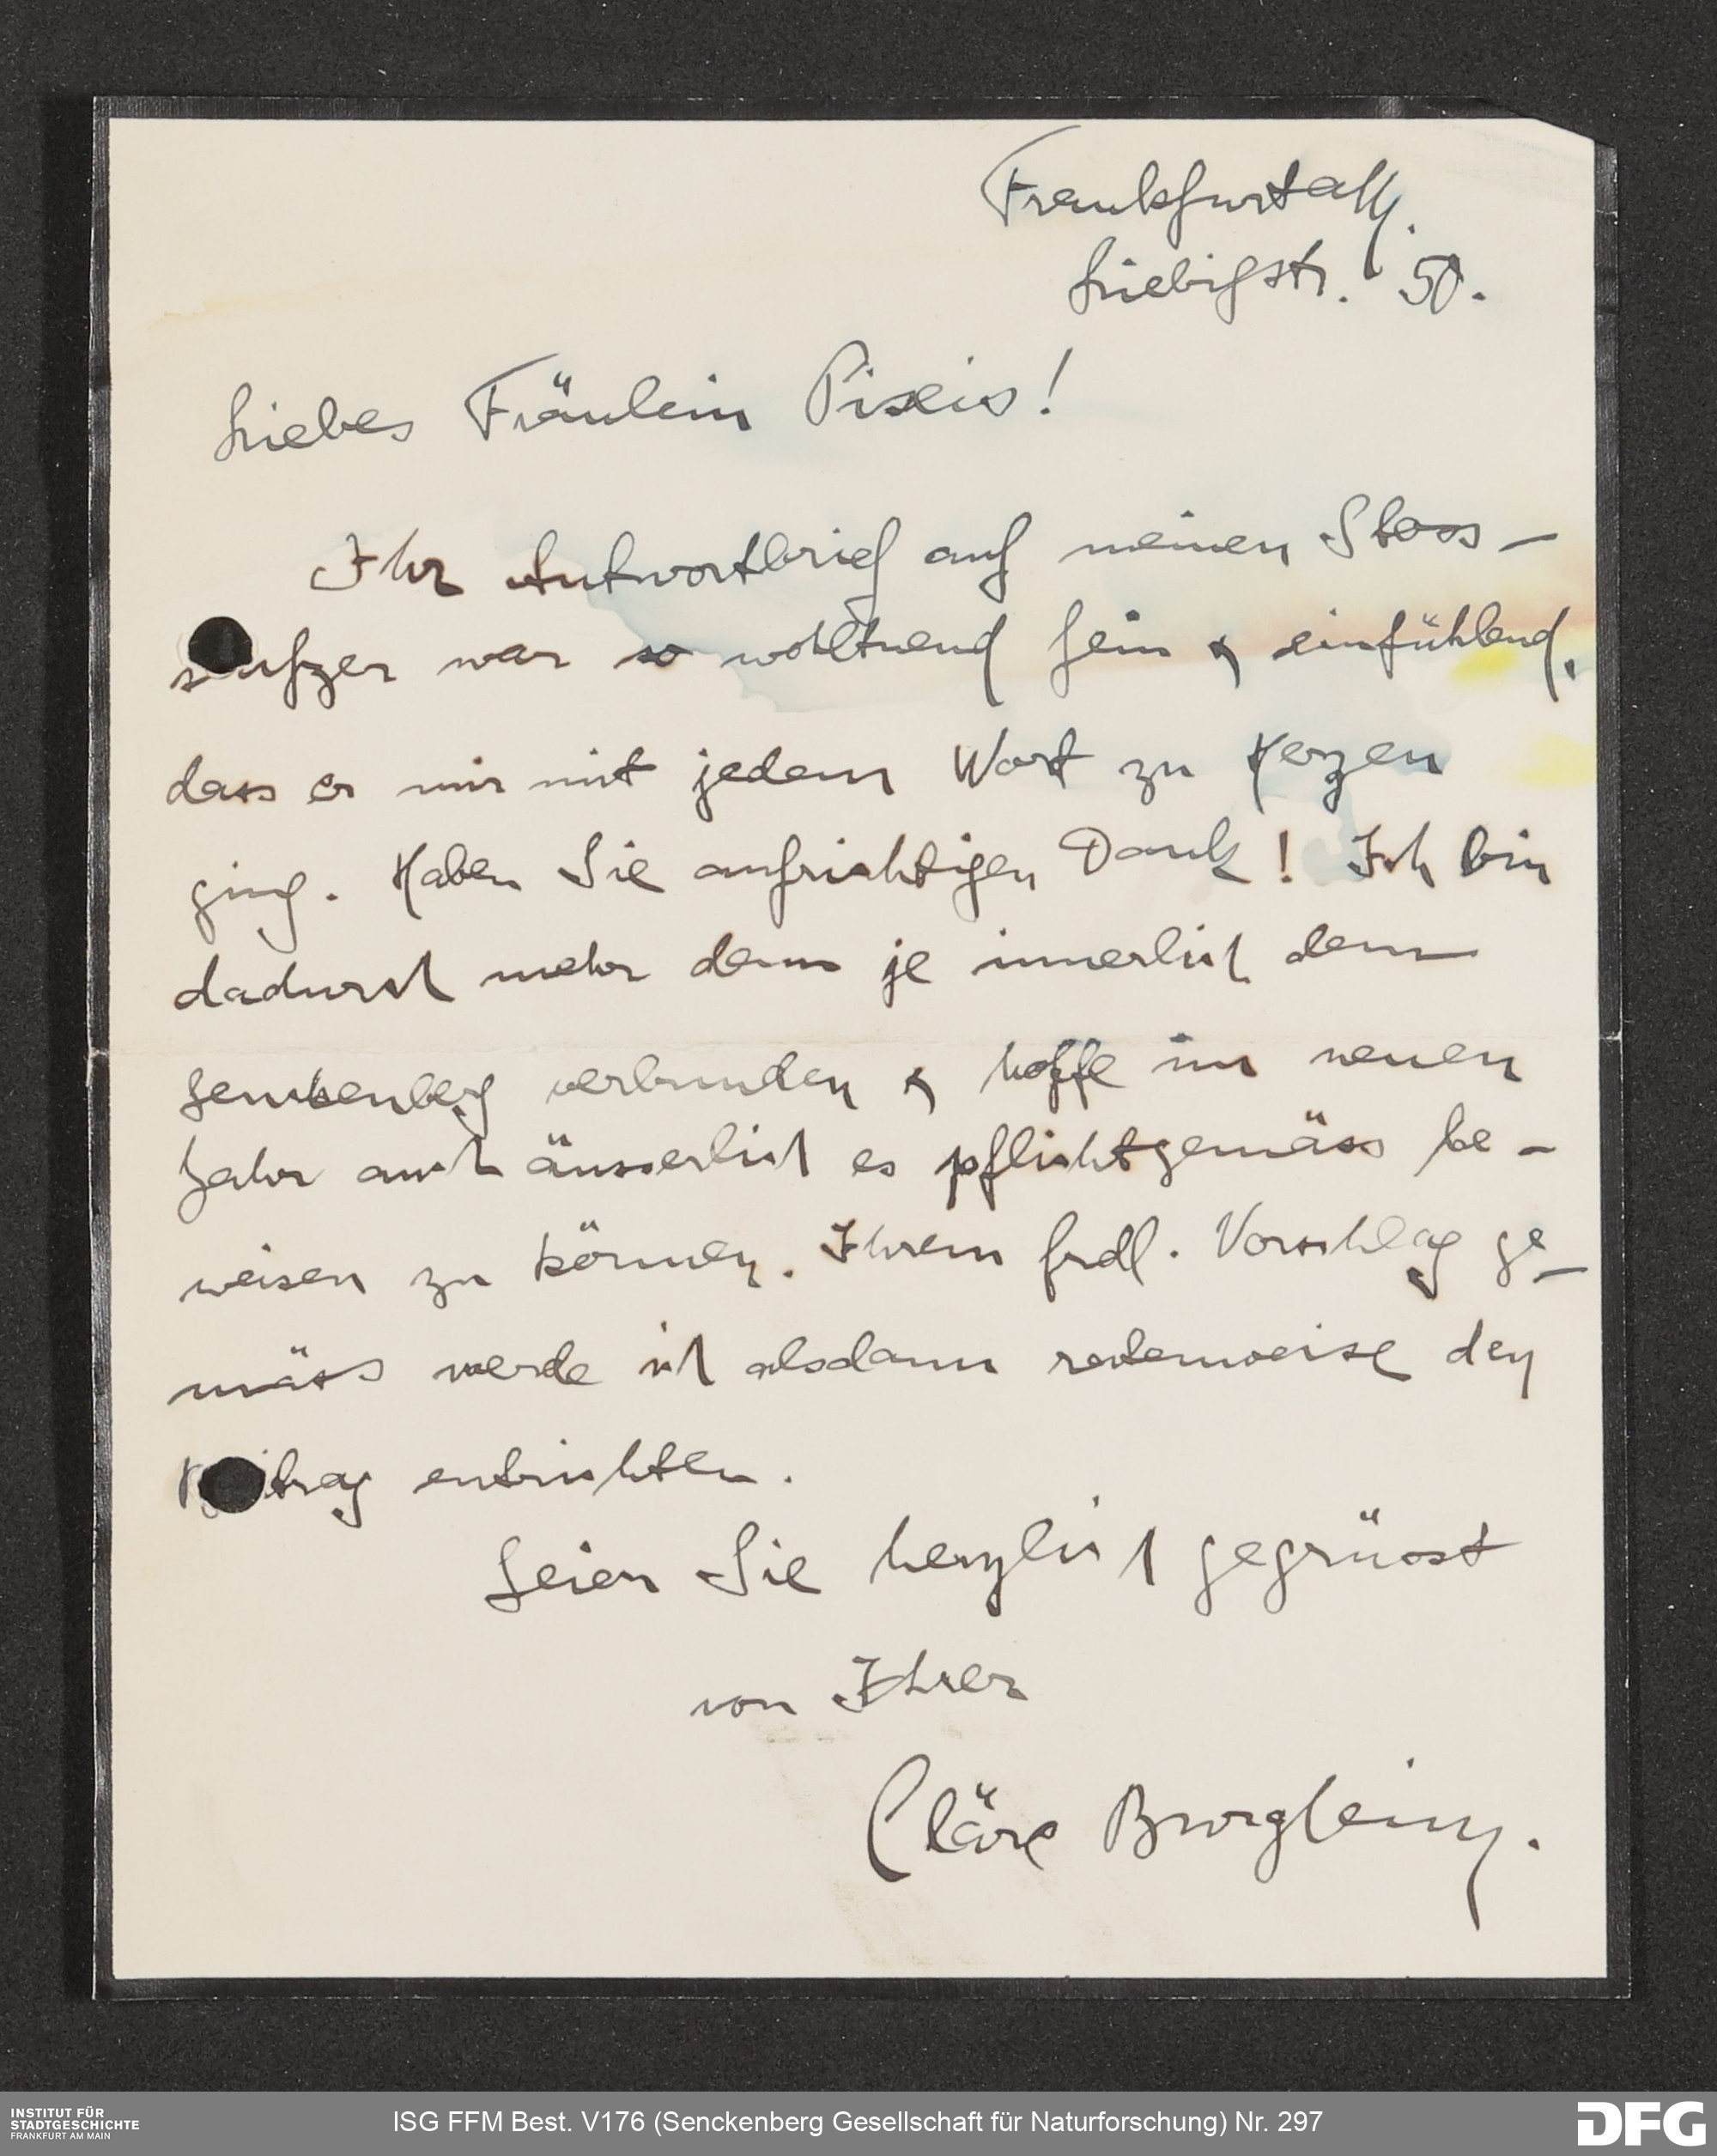 Frankfurt a/M.
Liebigstr. 50.
Liebes Fräulein Pixis!
Ihr Antwortbrief auf meinen Stoss-
seufzer war so wohltuend fein & einfühlend,
dass er mir mit jedem Wort zu Herzen
ging. Haben Sie aufrichtigen Dank! Ich bin
dadurch mehr denn je innerlich dem
Senckenberg verbunden & hoffe im neuen
Jahr auch äusserlich es pflichtgemäss be-
weisen zu können. Ihrem frdl. Vorschlag ge-
mäss werde ich alsdann ratenweise den
Beitrag entrichten.
Seien Sie herzlich gegrüsst
von Ihrer
Cläre
INSTITUT FÜR
STADTGESCHICHTE
FRANKFURT AM MAIN
ISG FFM Best. V176 (Senckenberg Gesellschaft für Naturforschung) Nr. 297
DFG